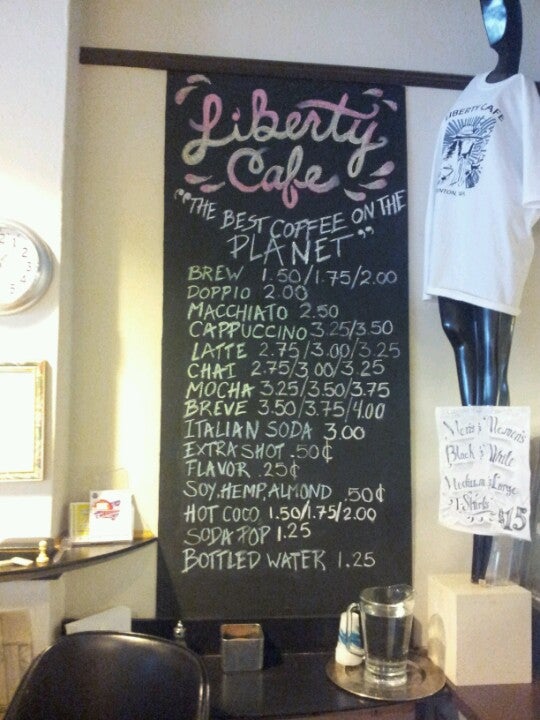 Liberty
Cafe
"THE BEST COFFEE ON THE
PLANET"
BREW 1.50/1.75/2.00
DOPPIO 2.00
MACCHIATO 2.50
CAPPUCCINO 3.25/3.50
LATTE 2.75/3.00/3.25
CHAI 2.75/3.00/3.25
MOCHA 3.25/3.50/3.75
BREVE 3.50/3.75/4.00
ITALIAN SODA 3.00
EXTRA SHOT .50¢
FLAVOR .25¢
SOY, HEMP, ALMOND .50¢
HOT COCO 1.50/1.75/2.00
SODA POP 1.25
BOTTLED WATER 1.25
LIBERTY CAFE
Men's & Women's
Black & White
Medium & Large
T-Shirts
$15